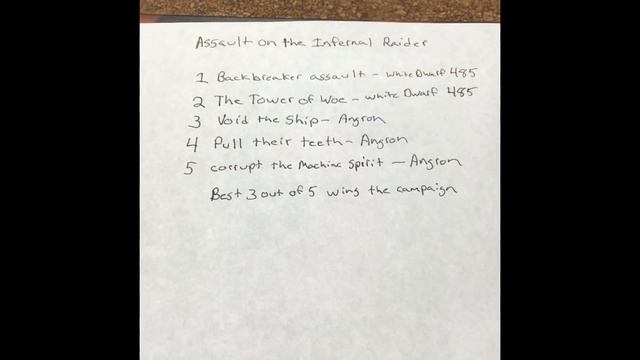 Assault on the Infernal Raider
1 Backbreaker assault - White Dwarf 485
2 The Tower of Woe - White Dwarf 485
3 Void the Ship - Angron
4 Pull their teeth - Angron
5 corrupt the Machine Spirit - Angron
Best 3 out of 5 wins the campaign